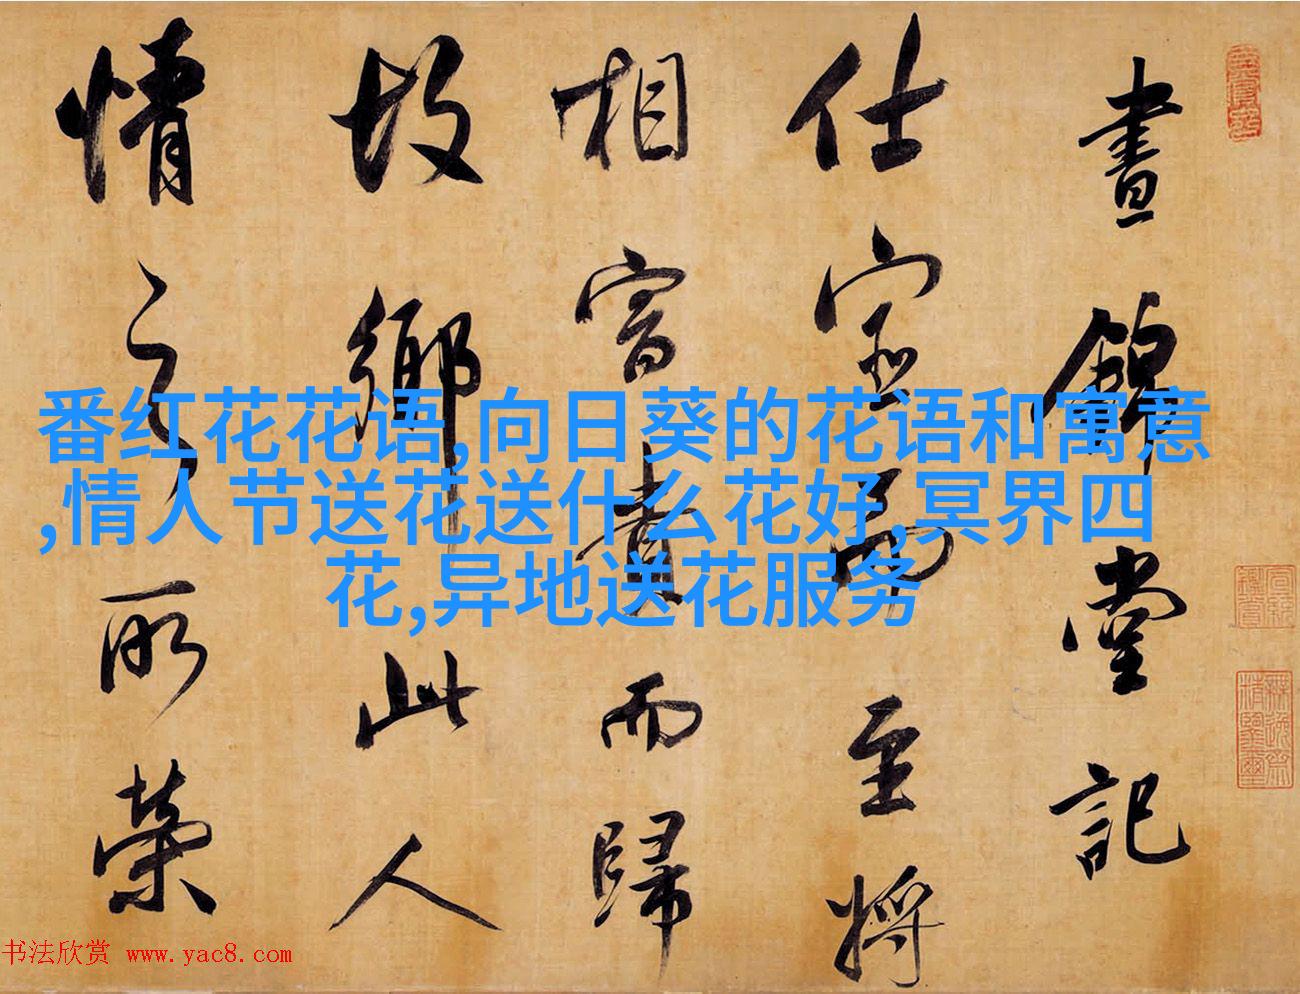 晝錦堂記
仕宦而至將
相富貴而歸
故鄉此人
情之所榮
番红花花语,向日葵的花语和寓意
,情人节送花送什么花好,冥界四
花,异地送花服务
书法欣赏 www.yac8.com